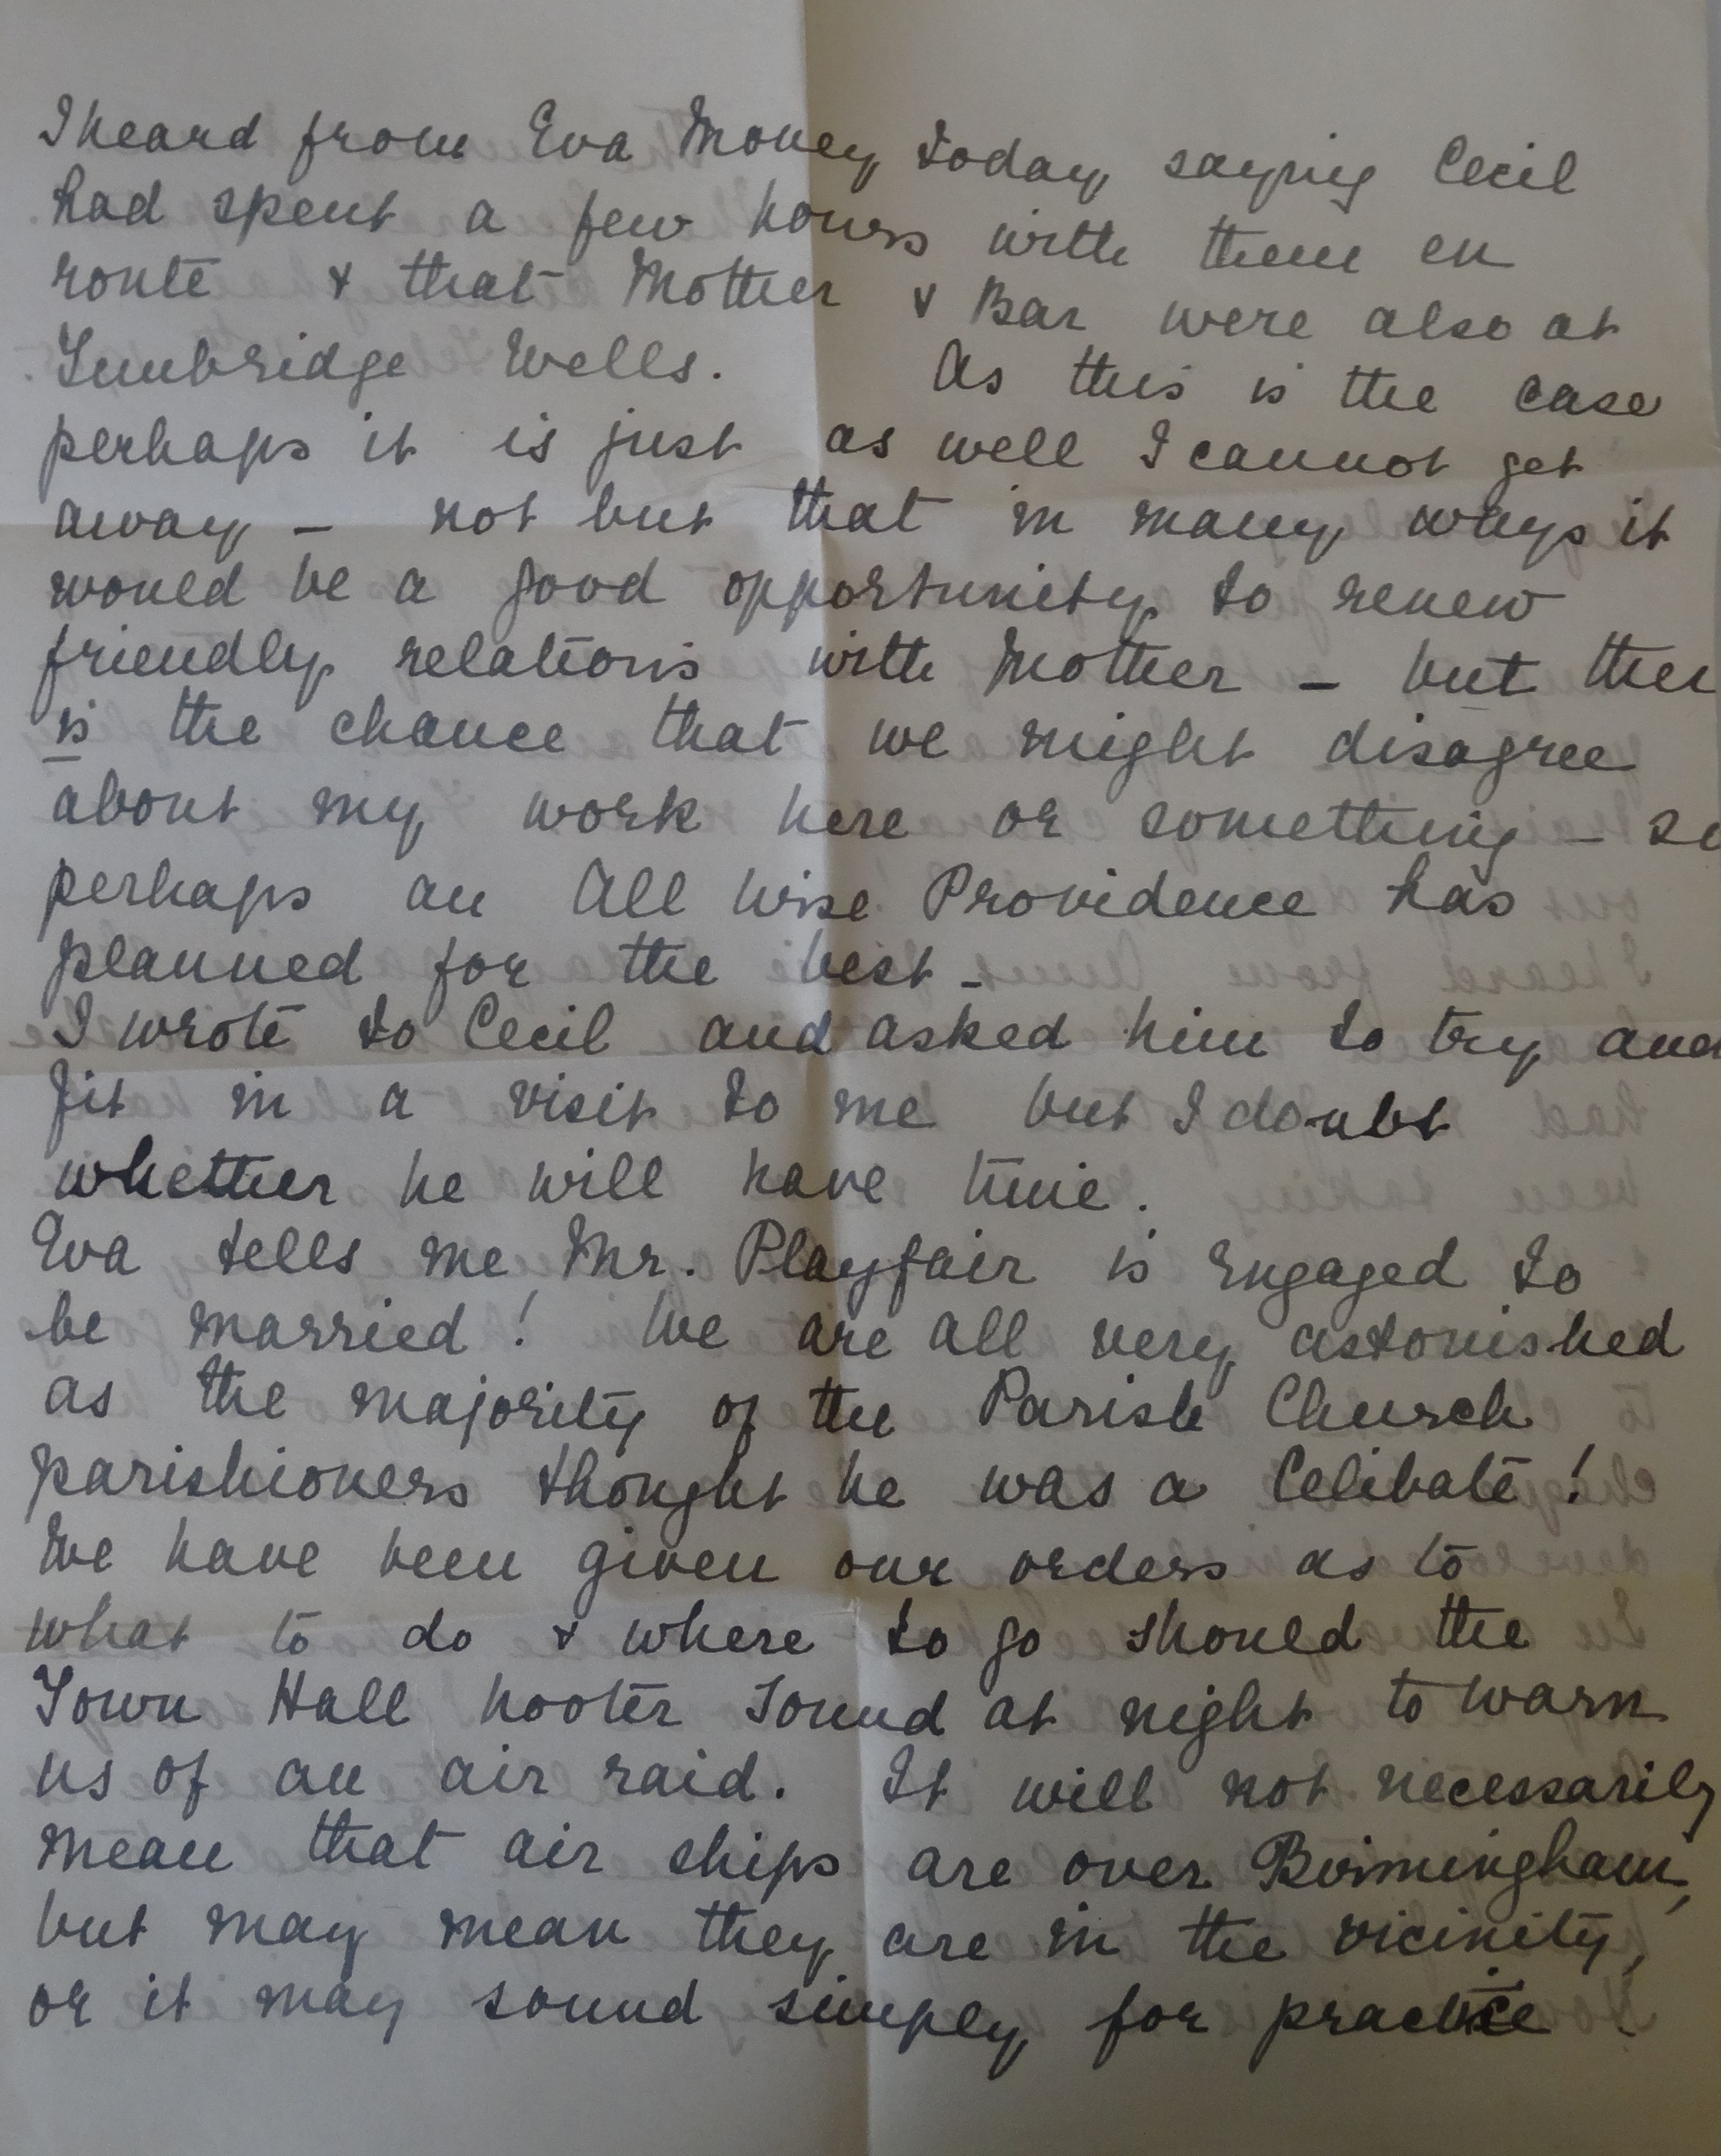 I heard from Eva Money today saying Cecil
had spent a few hours with them en
route & that Mother & Bar were also at
Tunbridge Wells. As this is the case
perhaps it is just as well I cannot get
away – not but that in many ways it
would be a good opportunity to renew
friendly relations with Mother – but ther
is the chance that we might disagree
about my work here or something – so
perhaps an All Wise Providence has
planned for the best –
I wrote to Cecil and asked him to try and
fit in a visit to me but I doubt
whether he will have time.
Eva tells me Mr. Playfair is engaged to
be married! We are all very astonished
as the majority of the Parish Church
parishioners thought he was a Celibate!
We have been given our orders as to
what to do & where to go should the
Town Hall hooter sound at night to warn
us of an air raid. It will not necessarily
mean that air ships are over Birmingham,
but may mean they are in the vicinity,
or it may sound simply for practice!